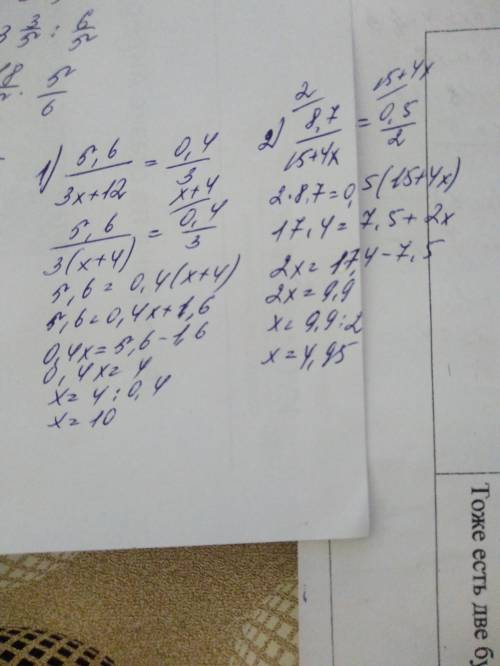 3 3/5 : 6/5
18/ · 5/6
1) 5,6/(3x+12) = 0,4/3
x+4
5,6/3(x+4) = 0,4/3
5,6 = 0,4(x+4)
5,6 = 0,4x+1,6
0,4x = 5,6-1,6
0,4x = 4
x = 4 : 0,4
x = 10
2 15+4x
2) 8,7/(15+4x) = 0,5/2
2·8,7 = 0,5(15+4x)
17,4 = 7,5 + 2x
2x = 17,4 - 7,5
2x = 9,9
x = 9,9 : 2
x = 4,95
Тоже есть две бу